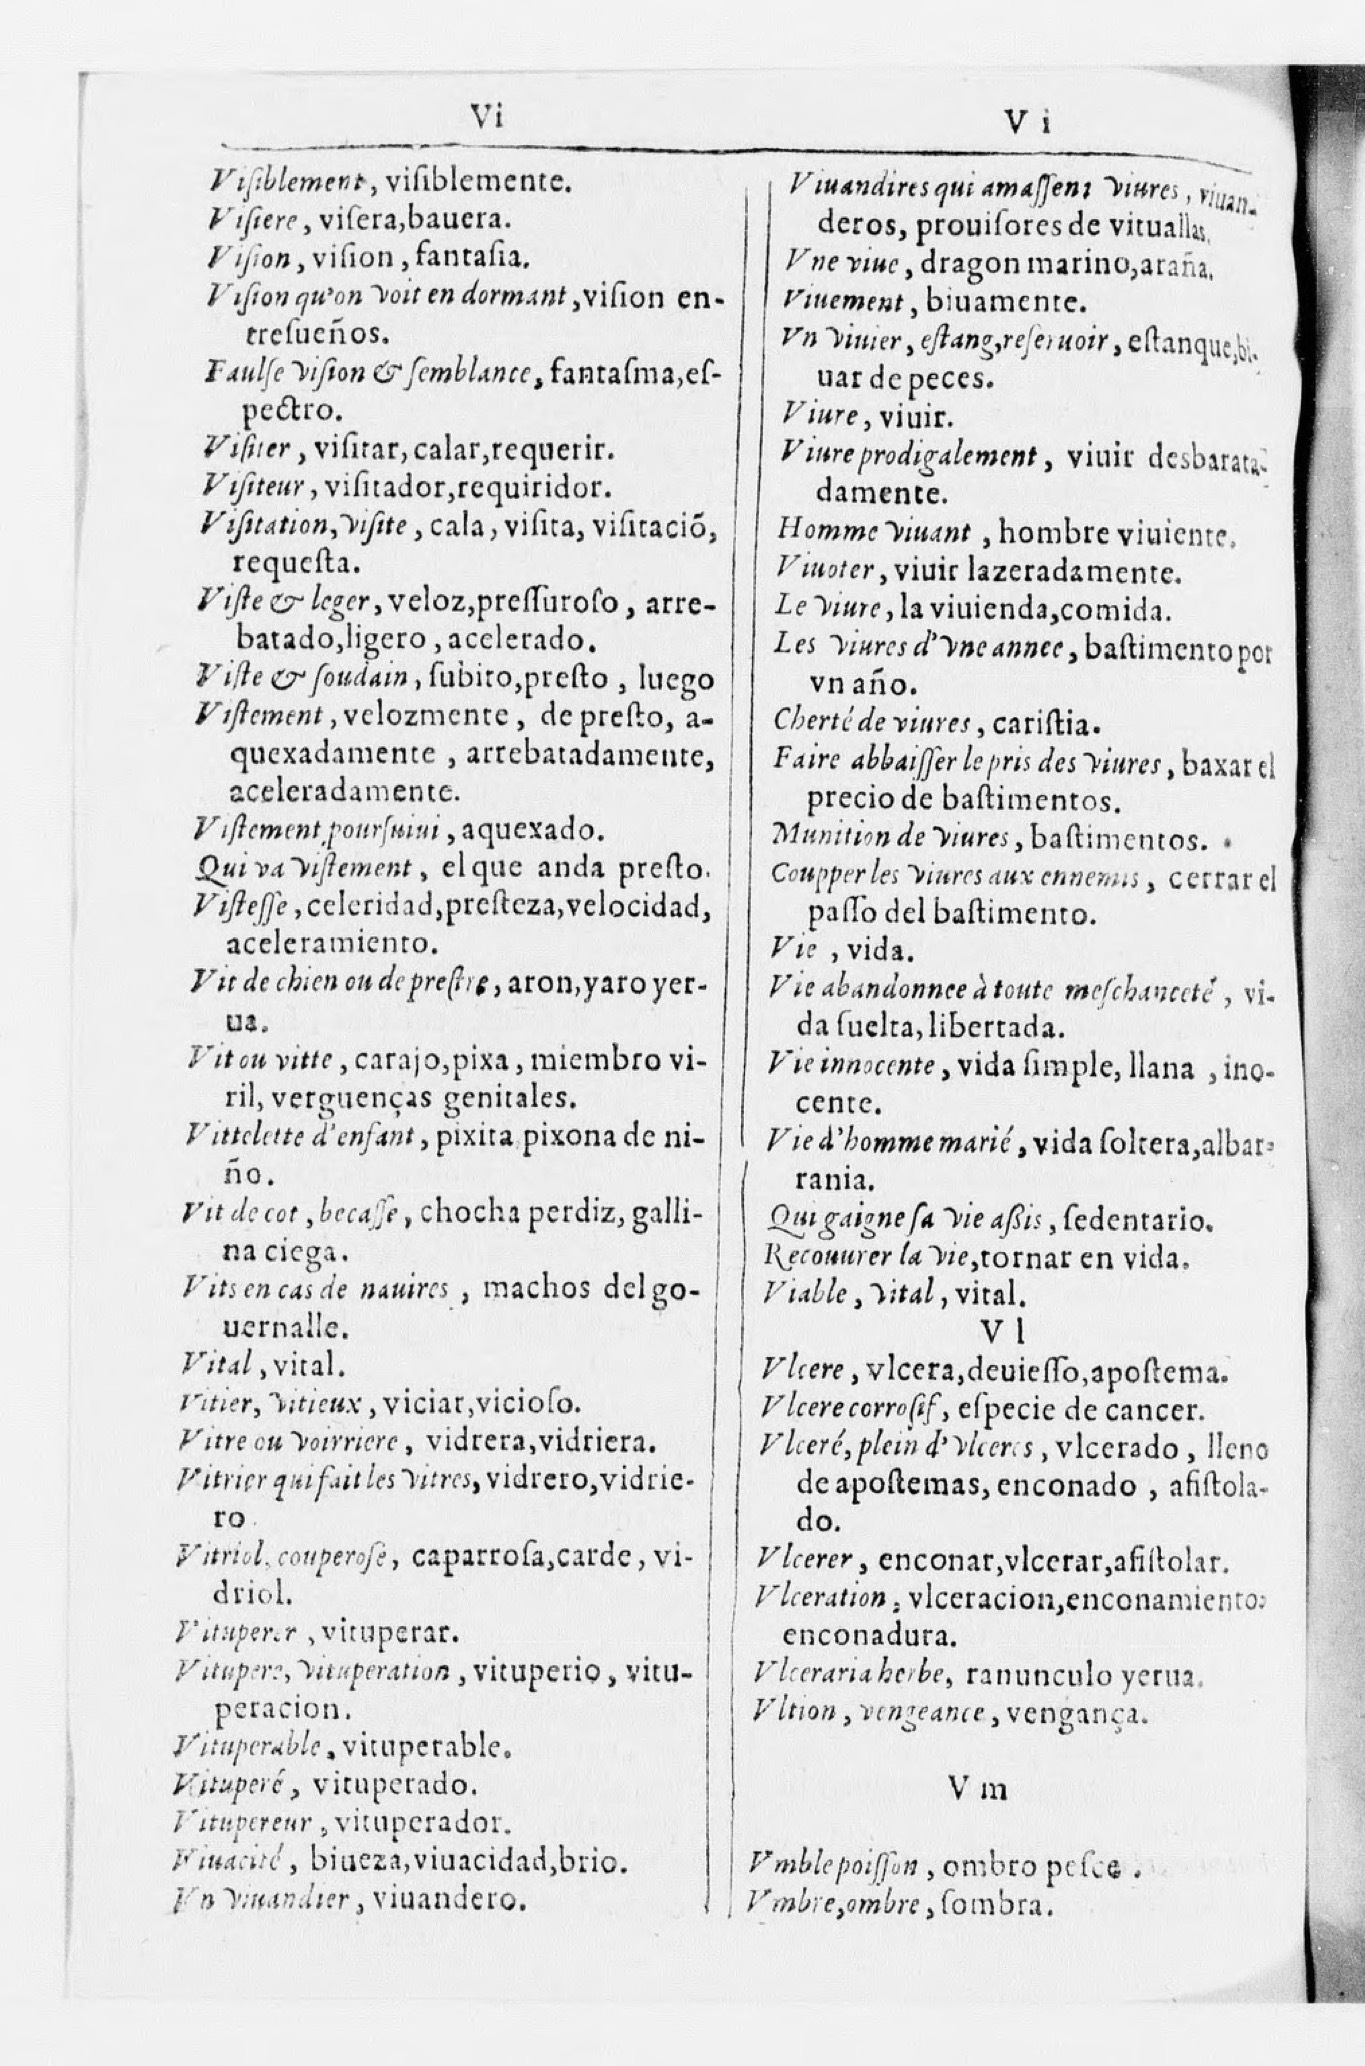 Vi
Viſiblement, viſiblemente.
Viſiere, viſera,bauera.
Viſion, viſion, fantaſia.
Viſion qu'on voit en dormant, viſion en-
treſueños.
Faulſe viſion & ſemblance, fantaſma,eſ-
pectro.
Viſiter, viſitar, calar,requerir.
Viſiteur, viſitador,requiridor.
Viſitation, viſite, cala, viſita, viſitaciõ,
requeſta.
Viſte & leger, veloz,preſſuroſo, arre-
batado,ligero, acelerado.
Viſte & ſoudain, ſubito,preſto, luego
Viſtement, velozmente, de preſto, a-
quexadamente, arrebatadamente,
aceleradamente.
Viſtement pourſuiui, aquexado.
Qui va viſtement, el que anda preſto.
Viſteſſe, celeridad,preſteza,velocidad,
aceleramiento.
Vit de chien ou de preſtre, aron,yaro yer-
ua.
Vit ou vitte, carajo,pixa, miembro vi-
ril, verguenças genitales.
Vittelette d'enfant, pixita pixona de ni-
ño.
Vit de cot, becaſſe, chocha perdiz, galli-
na ciega.
Vits en cas de nauires, machos del go-
uernalle.
Vital, vital.
Vitier, vitieux, viciar,vicioſo.
Vitre ou voirriere, vidrera,vidriera.
Vitrier qui fait les vitres, vidrero,vidrie-
ro.
Vitriol, couperoſe, caparroſa,carde, vi-
driol.
Vituperer, vituperar.
Vitupere, vituperation, vituperio, vitu-
peracion.
Vituperable, vituperable.
Vituperé, vituperado.
Vitupereur, vituperador.
Viuacité, biueza,viuacidad,brio.
Vn viuandier, viuandero.
V i
Viuandires qui amaſſent viures, viuan-
deros, prouiſores de vituallas.
Vne viue, dragon marino,araña.
Viuement, biuamente.
Vn viuier, eſtang,reſeruoir, eſtanque,bi-
uar de peces.
Viure, viuir.
Viure prodigalement, viuir desbarata-
damente.
Homme viuant, hombre viuiente.
Viuoter, viuir lazeradamente.
Le viure, la viuienda,comida.
Les viures d'vne annee, baſtimento por
vn año.
Cherté de viures, cariſtia.
Faire abbaiſſer le pris des viures, baxar el
precio de baſtimentos.
Munition de viures, baſtimentos.
Coupper les viures aux ennemis, cerrar el
paſſo del baſtimento.
Vie, vida.
Vie abandonnee à toute meſchanceté, vi-
da ſuelta, libertada.
Vie innocente, vida ſimple, llana, ino-
cente.
Vie d'homme marié, vida ſoltera,albar-
rania.
Qui gaigne ſa vie aßis, ſedentario.
Recouurer la vie,tornar en vida.
Viable, vital, vital.
V l
Vlcere, vlcera,deuieſſo,apoſtema.
Vlcere corroſif, eſpecie de cancer.
Vlceré, plein d'vlceres, vlcerado, lleno
de apoſtemas, enconado, afiſtola-
do.
Vlcerer, enconar,vlcerar,afiſtolar.
Vlceration, vlceracion,enconamiento,
enconadura.
Vlceraria herbe, ranunculo yerua.
Vltion, vengeance, vengança.
V m
Vmble poiſſon, ombro peſce.
Vmbre,ombre, ſombra.